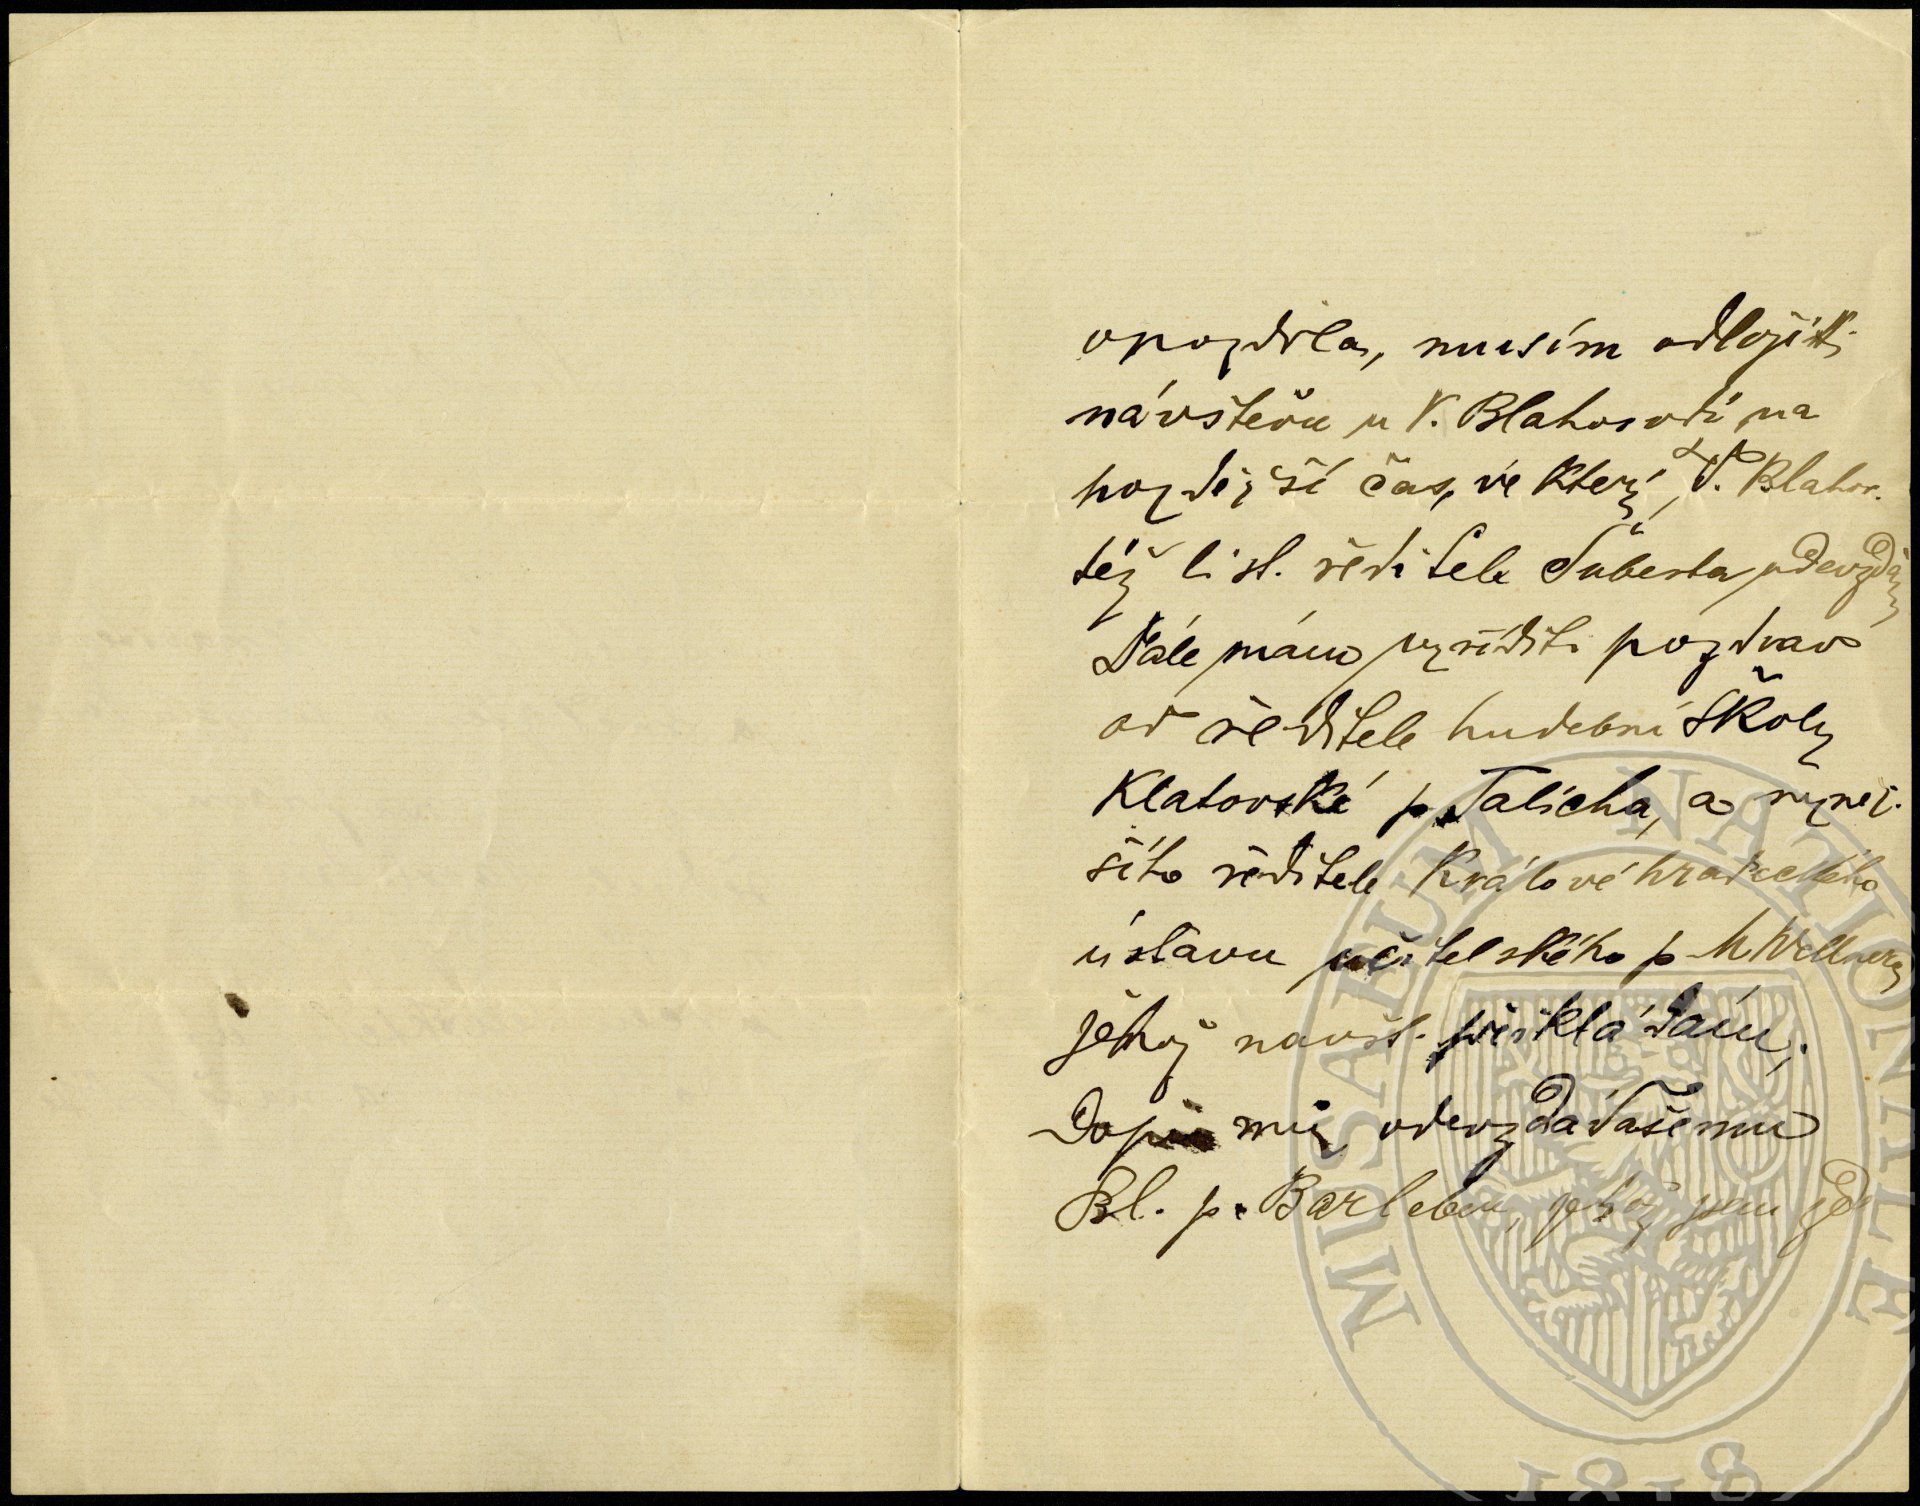 opozdila, musím odložiti
návštěvu u V. Blahorodí na
pozdější čas, ve který V. Blahor.
též list. ředitele Šuberta odevzdám
Dále mám vyříditi pozdrav
od ředitele hudební školy
Klatovské p. Talicha, a nyněj-
šího ředitele Královéhradeckého
ústavu učitelského p. Wellnera
jehož navšt. přikládám.
Dopis můj odevzdá Vašemu
Bl. p. Barleben, jehož jsem zde
MUSAEUM NATIONALE
1818